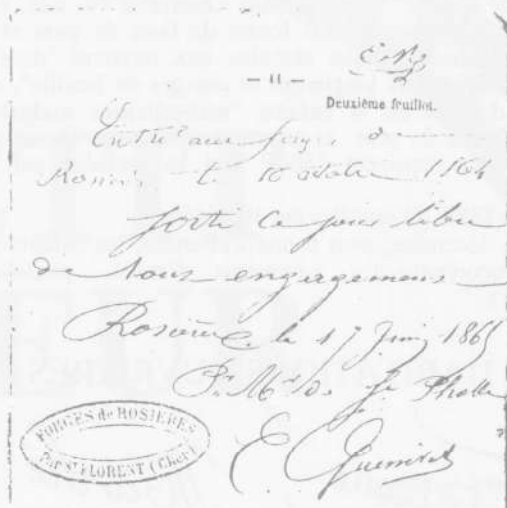 — 11 —
Deuxième feuillet.
Entré aux forges de
Rosières le 16 octobre 1864
sorti ce jour libre
de tous engagemens
Rosières le 17 Juin 1865
P. Mr
E.
FORGES de ROSIERES
Par St FLORENT (Cher)